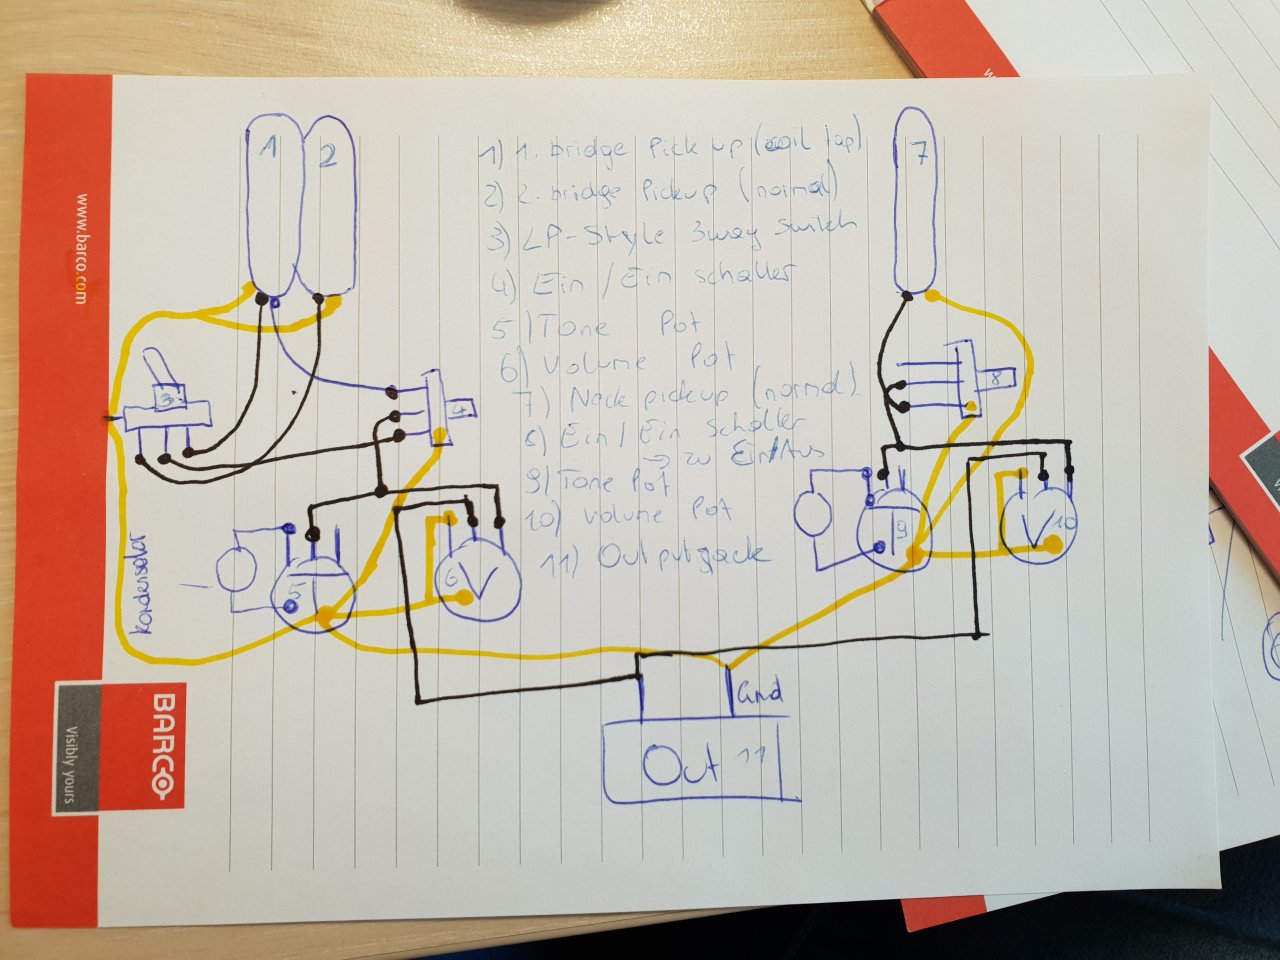 1) 1. bridge Pick up (coil tap)
2) 2. bridge Pickup (normal)
3) LP-Style 3way Switch
4) Ein / Ein schalter
5) Tone Pot
6) Volume Pot
7) Neck pickup (normal)
8) Ein / Ein Schalter
→ zu Ein/Aus
9) Tone Pot
10) Volume Pot
11) Outputjack
1
2
3
4
5
6 V
7
8
9
V 10
Kondensator
Gnd
Out 11
www.barco.com
BARCO
Visibly yours